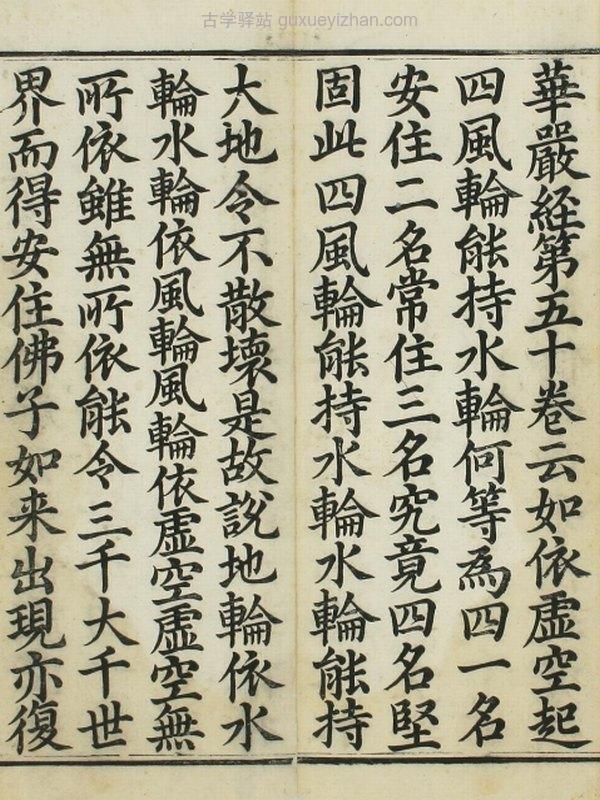 古学驿站 guxueyizhan.com
華嚴経第五十卷云如依虚空起
四風輪能持水輪何等為四一名
安住二名常住三名究竟四名堅
固此四風輪能持水輪水輪能持
大地令不散壊是故說地輪依水
輪水輪依風輪風輪依虚空虚空無
所依雖無所依能令三千大千世
界而得安住佛子如来出現亦復